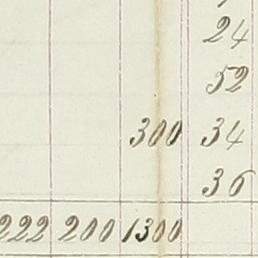 24
52
300 34
36
222 200 1300